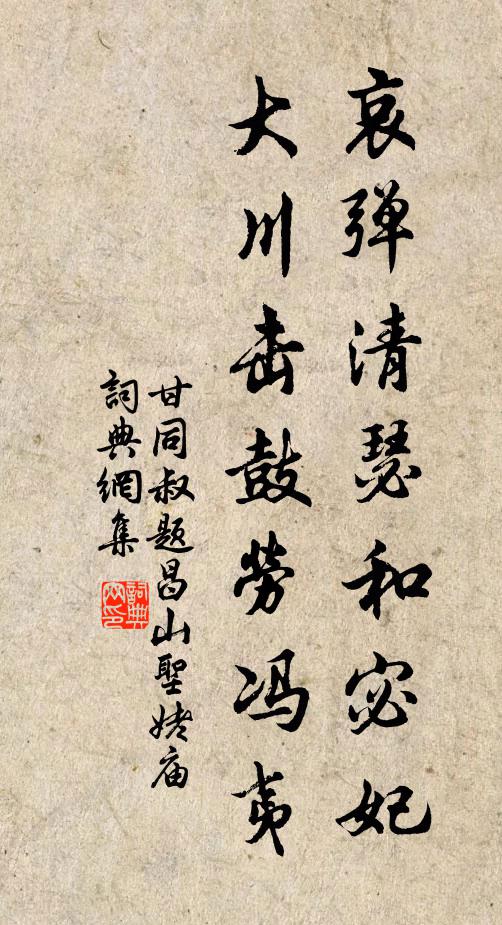 哀弹清瑟和宓妃
大川击鼓劳冯夷
甘同叔题昌山聖姥庙
詞典網集
詞典网印